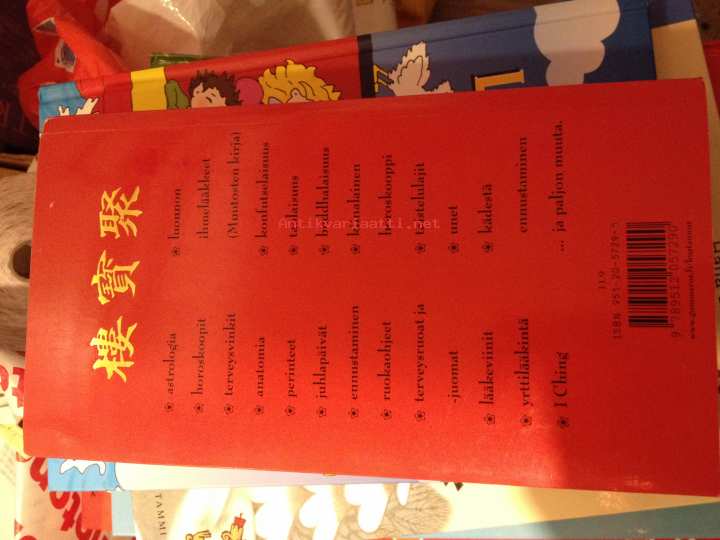 樓寶聚
❀ astrologia
❀ horoskoopit
❀ terveysvinkit
❀ anatomia
❀ perinteet
❀ juhlapäivät
❀ ennustaminen
❀ ruokaohjeet
❀ terveysruoat ja
-juomat
❀ lääkeviinit
❀ yrttilääkintä
❀ I Ching
❀ luonnon
ihmelääkkeet
(Muutosten kirja)
❀ konfutselaisuus
❀ taolaisuus
❀ buddhalaisuus
❀ kiinalainen
horoskooppi
❀ taistelulajit
❀ unet
❀ kädestä
ennustaminen
... ja paljon muuta.
11.9
ISBN 951-20-5729-5
9 789512 057290
Antikvariaatti.net
TAMMI